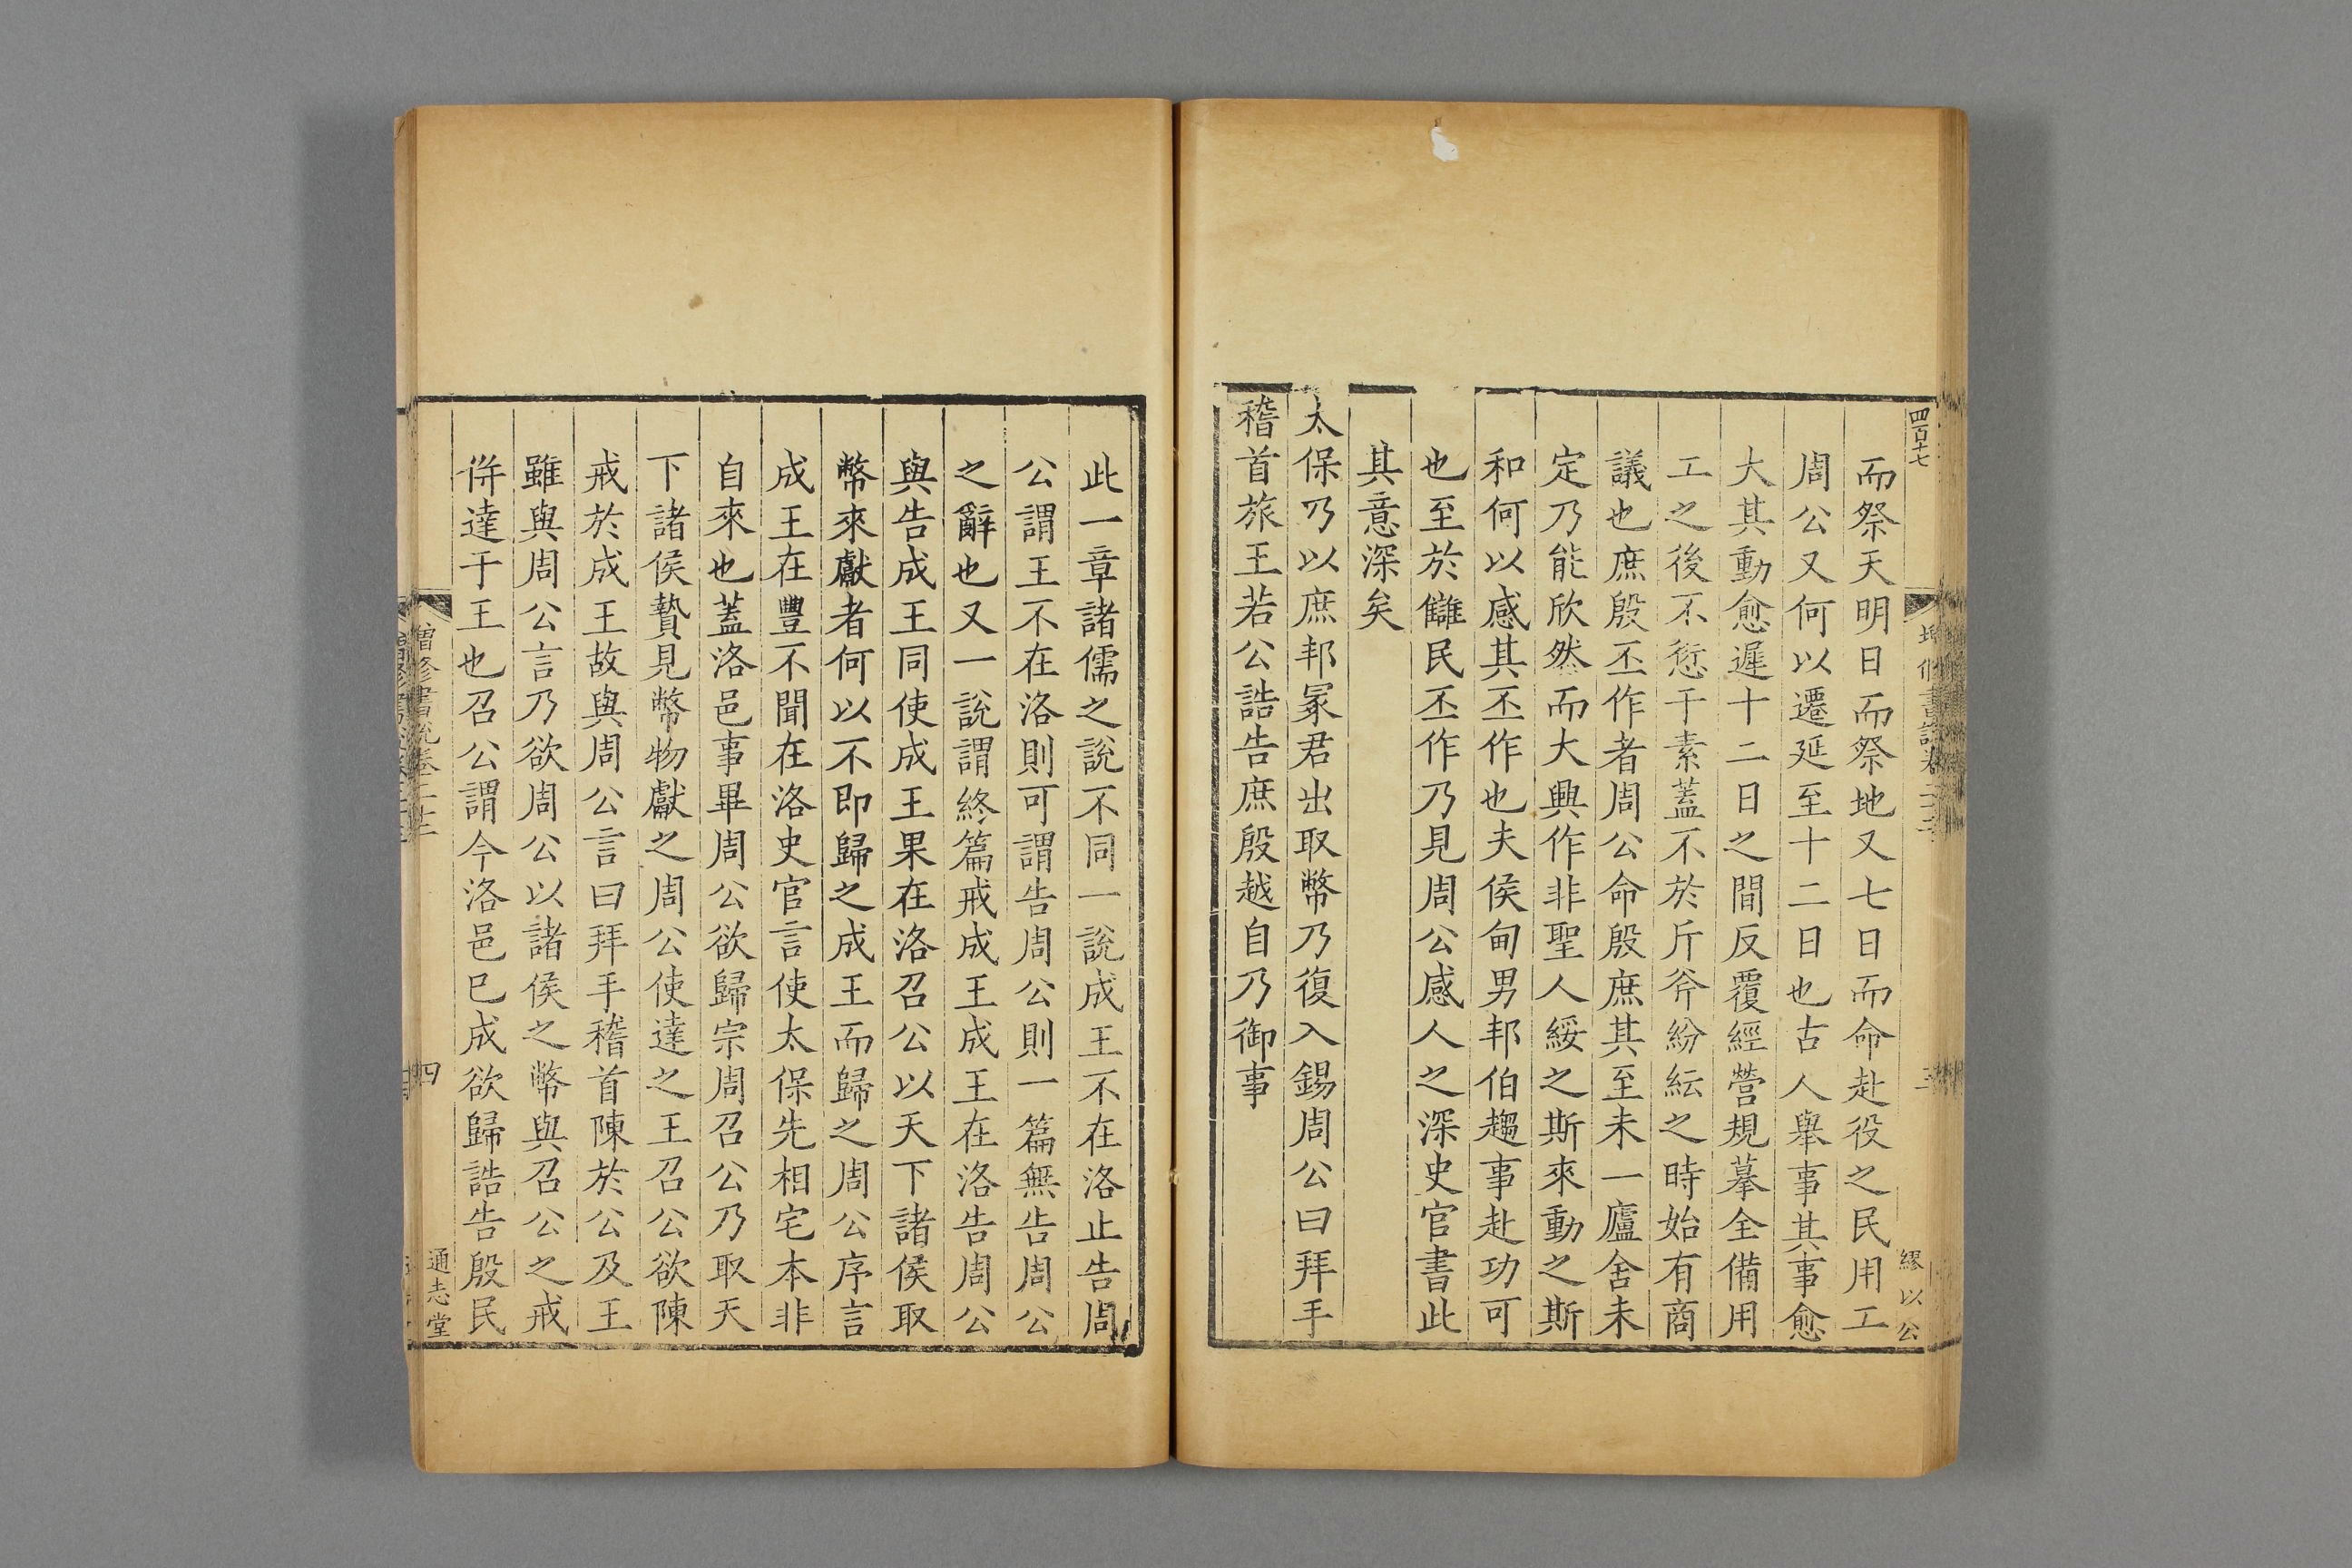 四百十七
而祭天明日而祭地又七日而命赴役之民用工
周公又何以遷延至十二日也古人舉事其事愈
大其動愈遲十二日之間反覆經營規摹全備用
工之後不愆于素蓋不於斤斧紛紜之時始有商
議也庶殷丕作者周公命殷庶其至未一廬舍未
定乃能欣然而大興作非聖人綏之斯來動之斯
和何以感其丕作也夫侯甸男邦伯趨事赴功可
也至於讎民丕作乃見周公感人之深史官書此
其意深矣
太保乃以庶邦冢君出取幣乃復入錫周公曰拜手
稽首旅王若公誥告庶殷越自乃御事
繆以公
此一章諸儒之說不同一說成王不在洛止告周
公謂王不在洛則可謂告周公則一篇無告周公
之辭也又一說謂終篇戒成王成王在洛告周公
與告成王同使成王果在洛召公以天下諸侯取
幣來獻者何以不即歸之成王而歸之周公序言
成王在豐不聞在洛史官言使太保先相宅本非
自來也蓋洛邑事畢周公欲歸宗周召公乃取天
下諸侯贄見幣物獻之周公使達之王召公欲陳
戒於成王故與周公言曰拜手稽首陳於公及王
雖與周公言乃欲周公以諸侯之幣與召公之戒
併達于王也召公謂今洛邑已成欲歸誥告殷民
增修書說卷二十二
四
通志堂